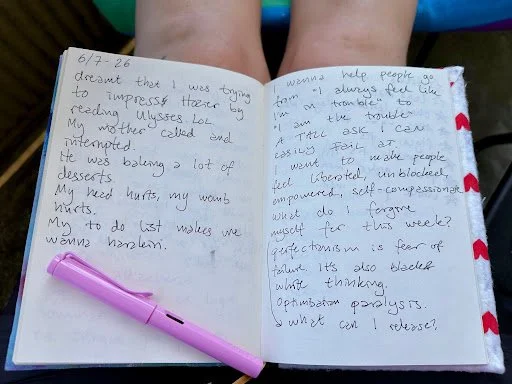 6/7-26
dreamt that I was trying
to impress Hozier by
reading Ulysses. LOL
My mother called and
interrupted.
He was baking a lot of
desserts.
My head hurts, my womb
hurts.
My to do list makes me
wanna harakiri.
I wanna help people go
from "I always feel like
I'm in trouble" to
"I am the trouble"
A TALL ASK I CAN
easily FAIL AT
I want to make people
feel liberated, unblocked,
empowered, self-compassionate
what do I forgive
myself for this week?
perfectionism is fear of
failure. It's also black &
white thinking.
Optimization paralysis.
what can I release?